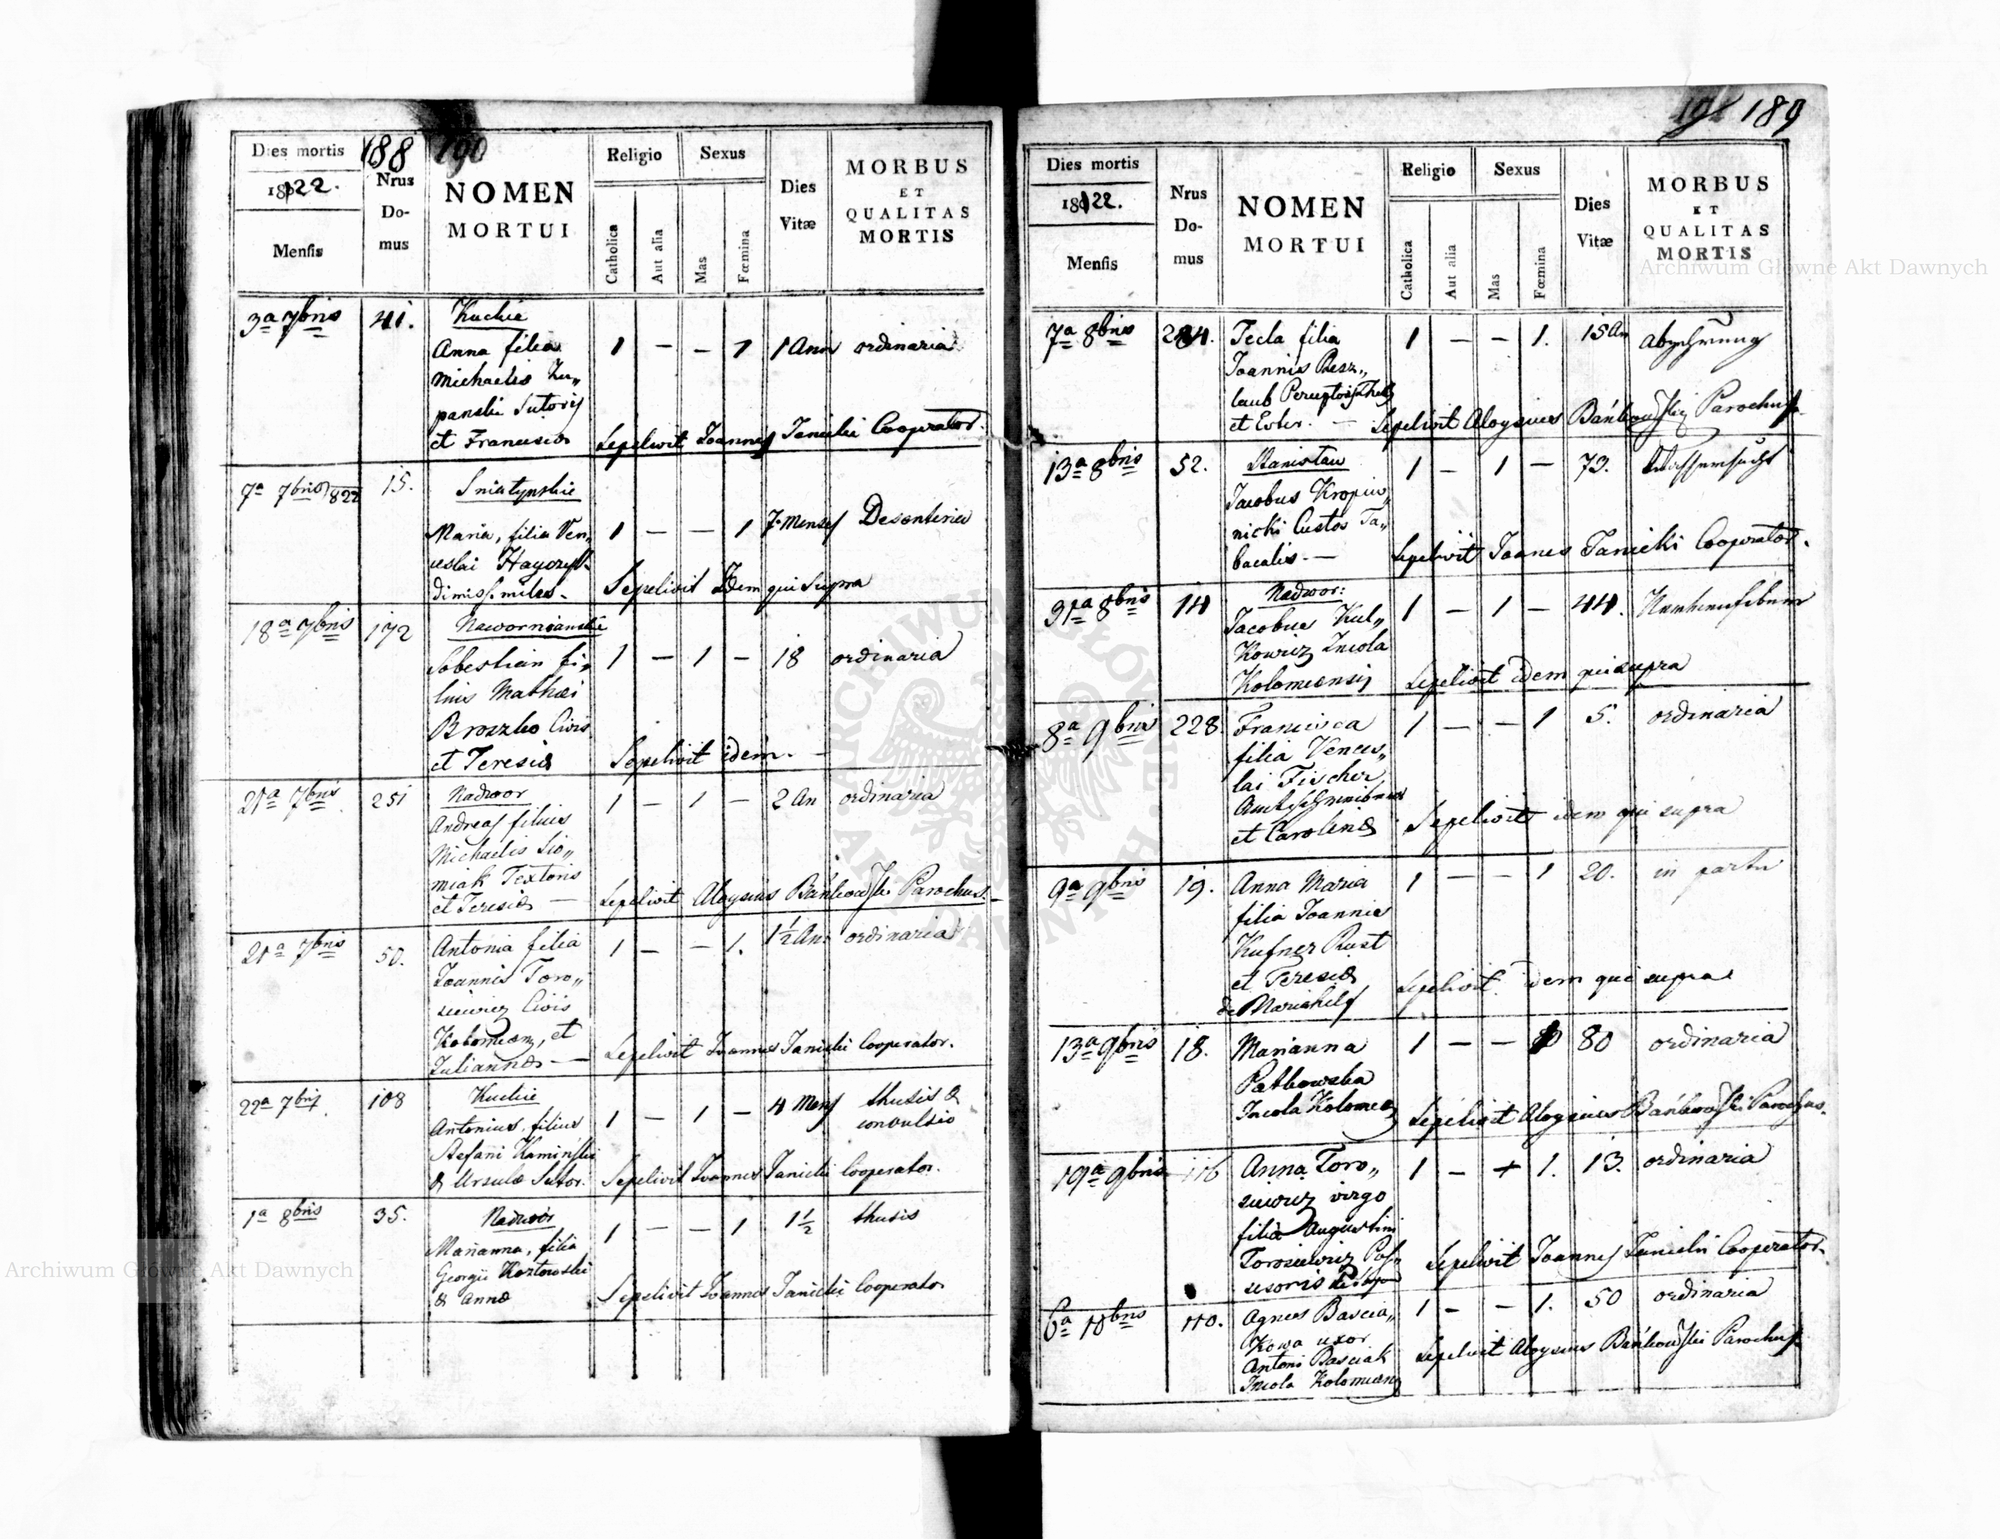 188 190
Dies mortis
1822.
Mensis
Nrus
Do-
mus
NOMEN
MORTUI
Religio
Catholica
Aut alia
Sexus
Mas
Fœmina
Dies
Vitæ
MORBUS
ET
QUALITAS
MORTIS
3a 7bris
41.
Kuchie
Anna filia
Michaelis Zu„
panski Sutoris
et Francisca
1 — — 1 1 Ann ordinaria
Sepelivit Joannes Janicki Cooperator.
7a 7bris 822
15.
Sniatynskie
Maria, filia Ven„
ceslai
dimiss. miles.
1 — — 1 7. Menses Desenteria
Sepelivit Idem qui Supra
18a 7bris
172
Nawornianskie
Sebestian fi„
lius Mathæi
Broszko Civis
et Teresiæ
1 — 1 — 18 ordinaria
Sepelivit idem. —
21a 7bris
251
Nadwor
Andreas filius
Michaelis Sio„
miak Textoris
et Teresiæ —
1 — 1 — 2 An ordinaria
Sepelivit Aloysius Bańkowski Parochus.
21a 7bris
50.
Antonia filia
Joannis Toro„
siewicz Civis
Kolomien, et
Juliannæ —
1 — — 1. 1 1/2 An: ordinaria
Sepelivit Joannes Janicki Cooperator.
22a 7bris
108
Kuchie
Antonius, filius
Stefani Kaminski
& Ursulæ Sutor.
1 — 1 — 4 Mens thusis &
convulsio
Sepelivit Joannes Janicki Cooperator.
1a 8bris
35.
Nadwor
Marianna, filia
Georgii Kozłowski
& Annæ
1 — — 1 1 1/2 thusis
Sepelivit Joannes Janicki Cooperator
189
Dies mortis
1822.
Mensis
Nrus
Do-
mus
NOMEN
MORTUI
Religio
Catholica
Aut alia
Sexus
Mas
Fœmina
Dies
Vitæ
MORBUS
ET
QUALITAS
MORTIS
7a 8bris
Tecla filia
Joannis Resz„
laub
et Ester. —
1 — — 1. 15 An Abzehrung
Sepelivit Aloysius Bańkowski Parochus
13a 8bris
52.
Stanislau
Jacobus Kropiw„
nicki Custos Ta„
bacalis. —
1 — 1 — 73. Wassersucht
Sepelivit Joanes Janicki Cooperator.
31a 8bris
14
Nadwor:
Jacobus Kul„
Kowicz Incola
Kolomiensis
1 — 1 — 44.
Sepelivit idem qui supra
8a 9bris
228.
Francisca
filia Vences„
lai Fischer
et Carolinæ
1 — — 1 5. ordinaria
Sepelivit idem qui supra
9a 9bris
19.
Anna Maria
filia Joannis
Kufner Rust
et Teresiæ
de Mariahilf
1 — — 1 20. in partu
Sepelivit idem qui supra
13a 9bris
18.
Marianna
Patkowska
Incola Kolomien
1 — — 80 ordinaria
Sepelivit Aloysius Bańkowski Parochus.
19a 9bris
116
Anna Toro„
siewicz virgo
filia Augustini
Torosiewicz Pos„
sesoris
1 — + 1. 13. ordinaria
Sepelivit Joannes Janicki Cooperator
6a 10bris
110.
Agnes Bascia„
Kowa uxor
Antoni Basciak
Incola Kolomien
1 — — 1. 50 ordinaria
Sepelivit Aloysius Bańkowski Parochus
Archiwum Główne Akt Dawnych
Archiwum Główne Akt Dawnych
ARCHIWUM GŁÓWNE AKT DAWNYCH